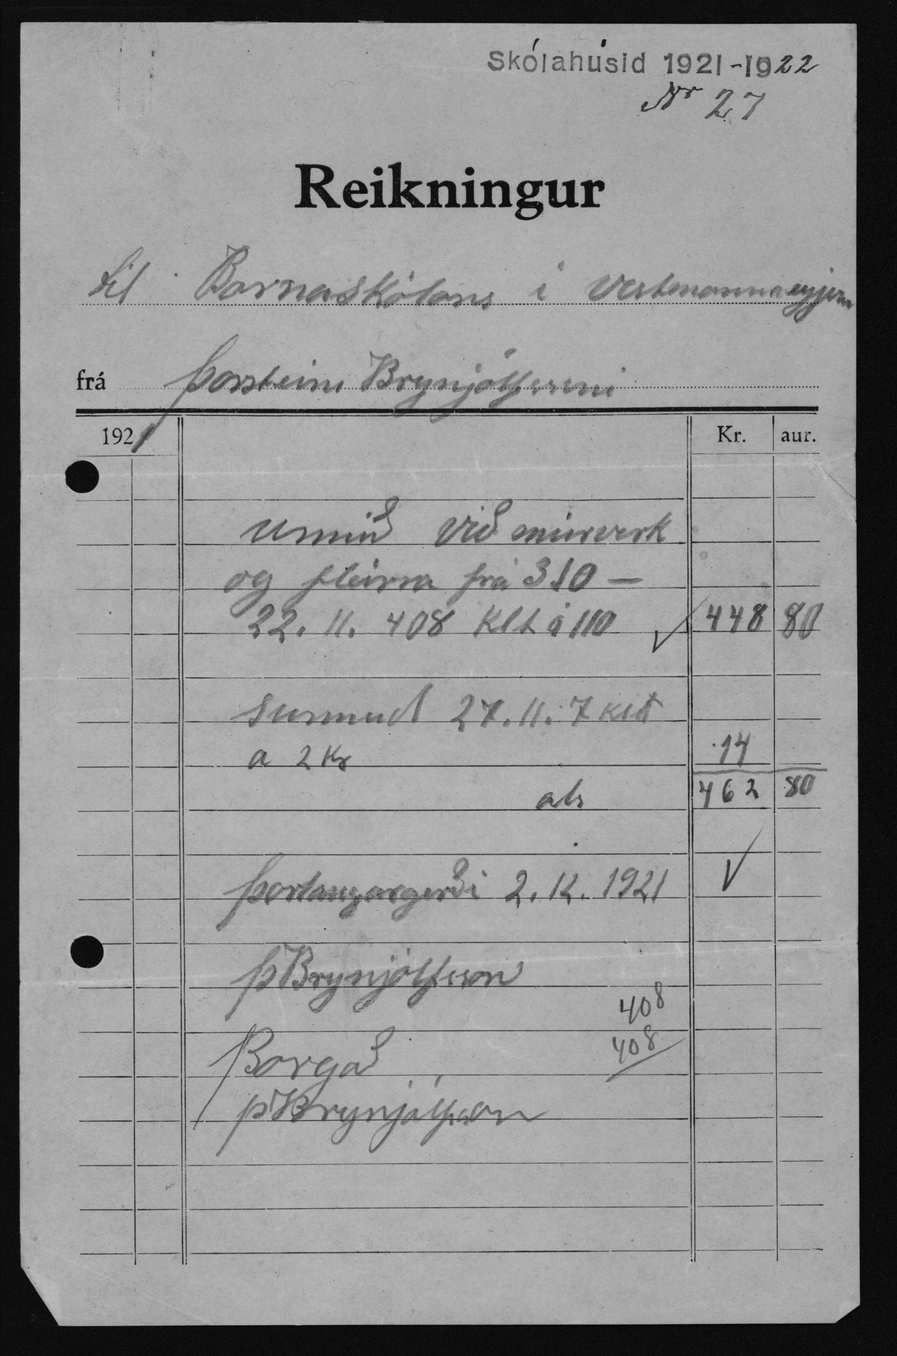 Skólahúsið 1921-1922
Nr 27
Reikningur
til Barnaskólans í Vestmannaeyjum
frá Þorsteini Brynjólfssyni
1921 Kr. aur.
unnið við múrverk
og fleirra frá 3 10 —
22. 11. 408 klt á 110 448 80
Sunnud 27. 11. 7 klt
a 2 Kr 14
als 462 80
Þorlaugargerði 2. 12. 1921
Þ Brynjólfsson
408
408
Borgað
Þ Brynjólfsson